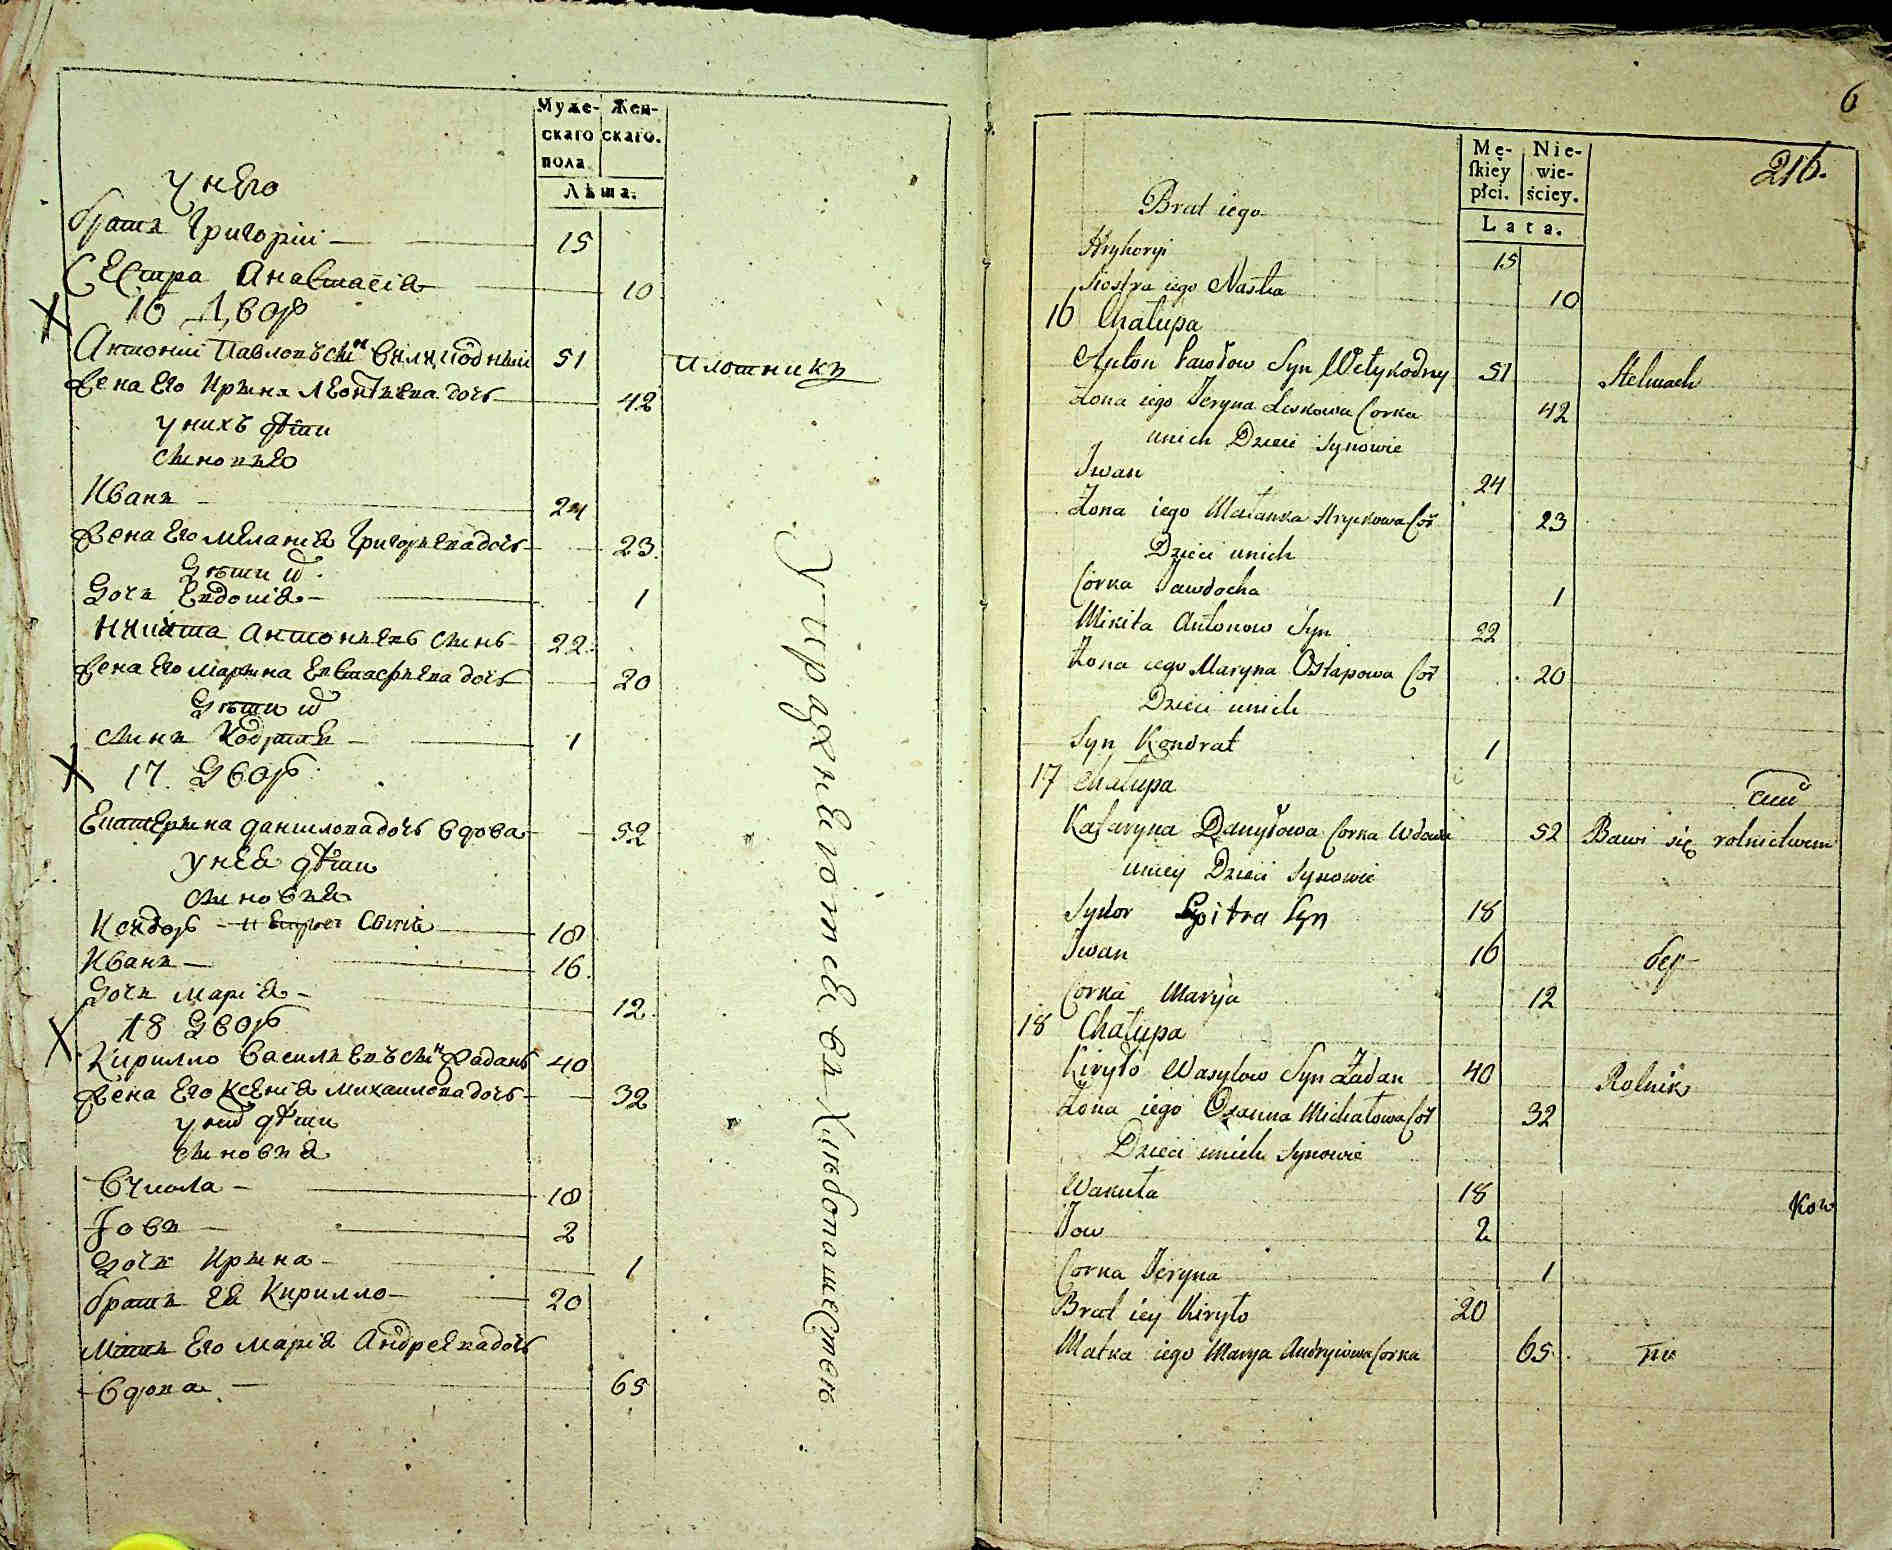 Муже-
скаго
пола
Жен-
скаго.
Лѣта.
у него
братъ Григорій — 15
Сестра Анастасія 10
16 Двор
Антоній Павловъ сынъ 51
плотникъ
жена его Ирына Леонтиева дочь 42
у нихъ дѣти
сыновъя
Иванъ — 24
жена его Меланія Григориева дочь 23
дѣти
дочь Евдокія — 1
Никита Антониевъ сынъ 22
жена его Марына Евстафиева дочь 20
дѣти
сынъ — 1
17. Двор
Екатерына Данилова дочь вдова 52
у нея дѣти
сыновья
18
Иванъ — 16
дочь Марія — 12
18 Двор
Кирилло Василиевъ сынъ Жаданъ 40
жена его Ксенія Михаилова дочь 32
дѣти
сыновья
Вукола — 18
Іовъ 2
дочь Ирына — 1
братъ ея Кирилло — 20
мать его Марія Андреева дочь
вдова — 65
Упражняются въ Хлебопашестве
6
216.
Mę-
ſkiey
płci.
Nie-
wie-
ściey.
Lata.
Brat iego
Hryhoryi 15
Siostra iego Nastia 10
16 Chałupa
Anton Pawłow Syn Wełykodny 51 Stelmach
Żona iego Jeryna Leskowa Corka 42
unich Dzieci Synowie
Iwan 24
Żona iego Małanka Hryckowa Cor 23
Dzieci unich
Córka Jawdocha 1
Mikita Antonow Syn 22
Żona iego Maryna Ostapowa Cor 20
Dzieci unich
Syn Kondrat 1
17 Chałupa
Kataryna Danyłowa Corka Wdowa 52 Bawi się rolnictwem
uniey Dzieci Synowie
Sydor Syn 18
Iwan 16
Corka Marya 12
18 Chałupa
Kiryło Wasylow Syn Żadan 40 Rolnik
Żona iego Oxanna Michałowa Cor 32
Dzieci unich Synowie
Wakuła 18
Kow
Jow 2
Corka Jeryna 1
Brat iey Kiryło 20
Matka iego Marya Andryiowa Corka 65